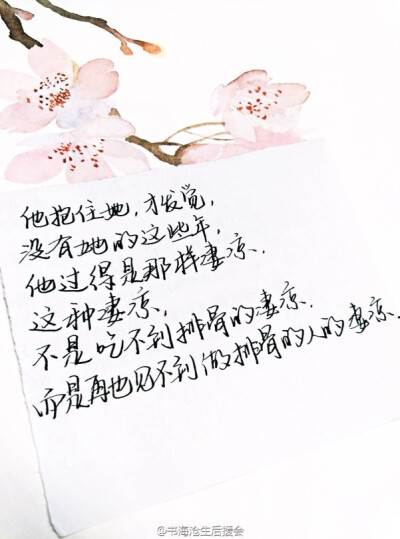 他抱住她,才发觉,
没有她的这些年,
他过得是那样凄凉.
这种凄凉,
不是吃不到排骨的凄凉.
而是再也见不到做排骨的人的凄凉.
@书海沧生后援会